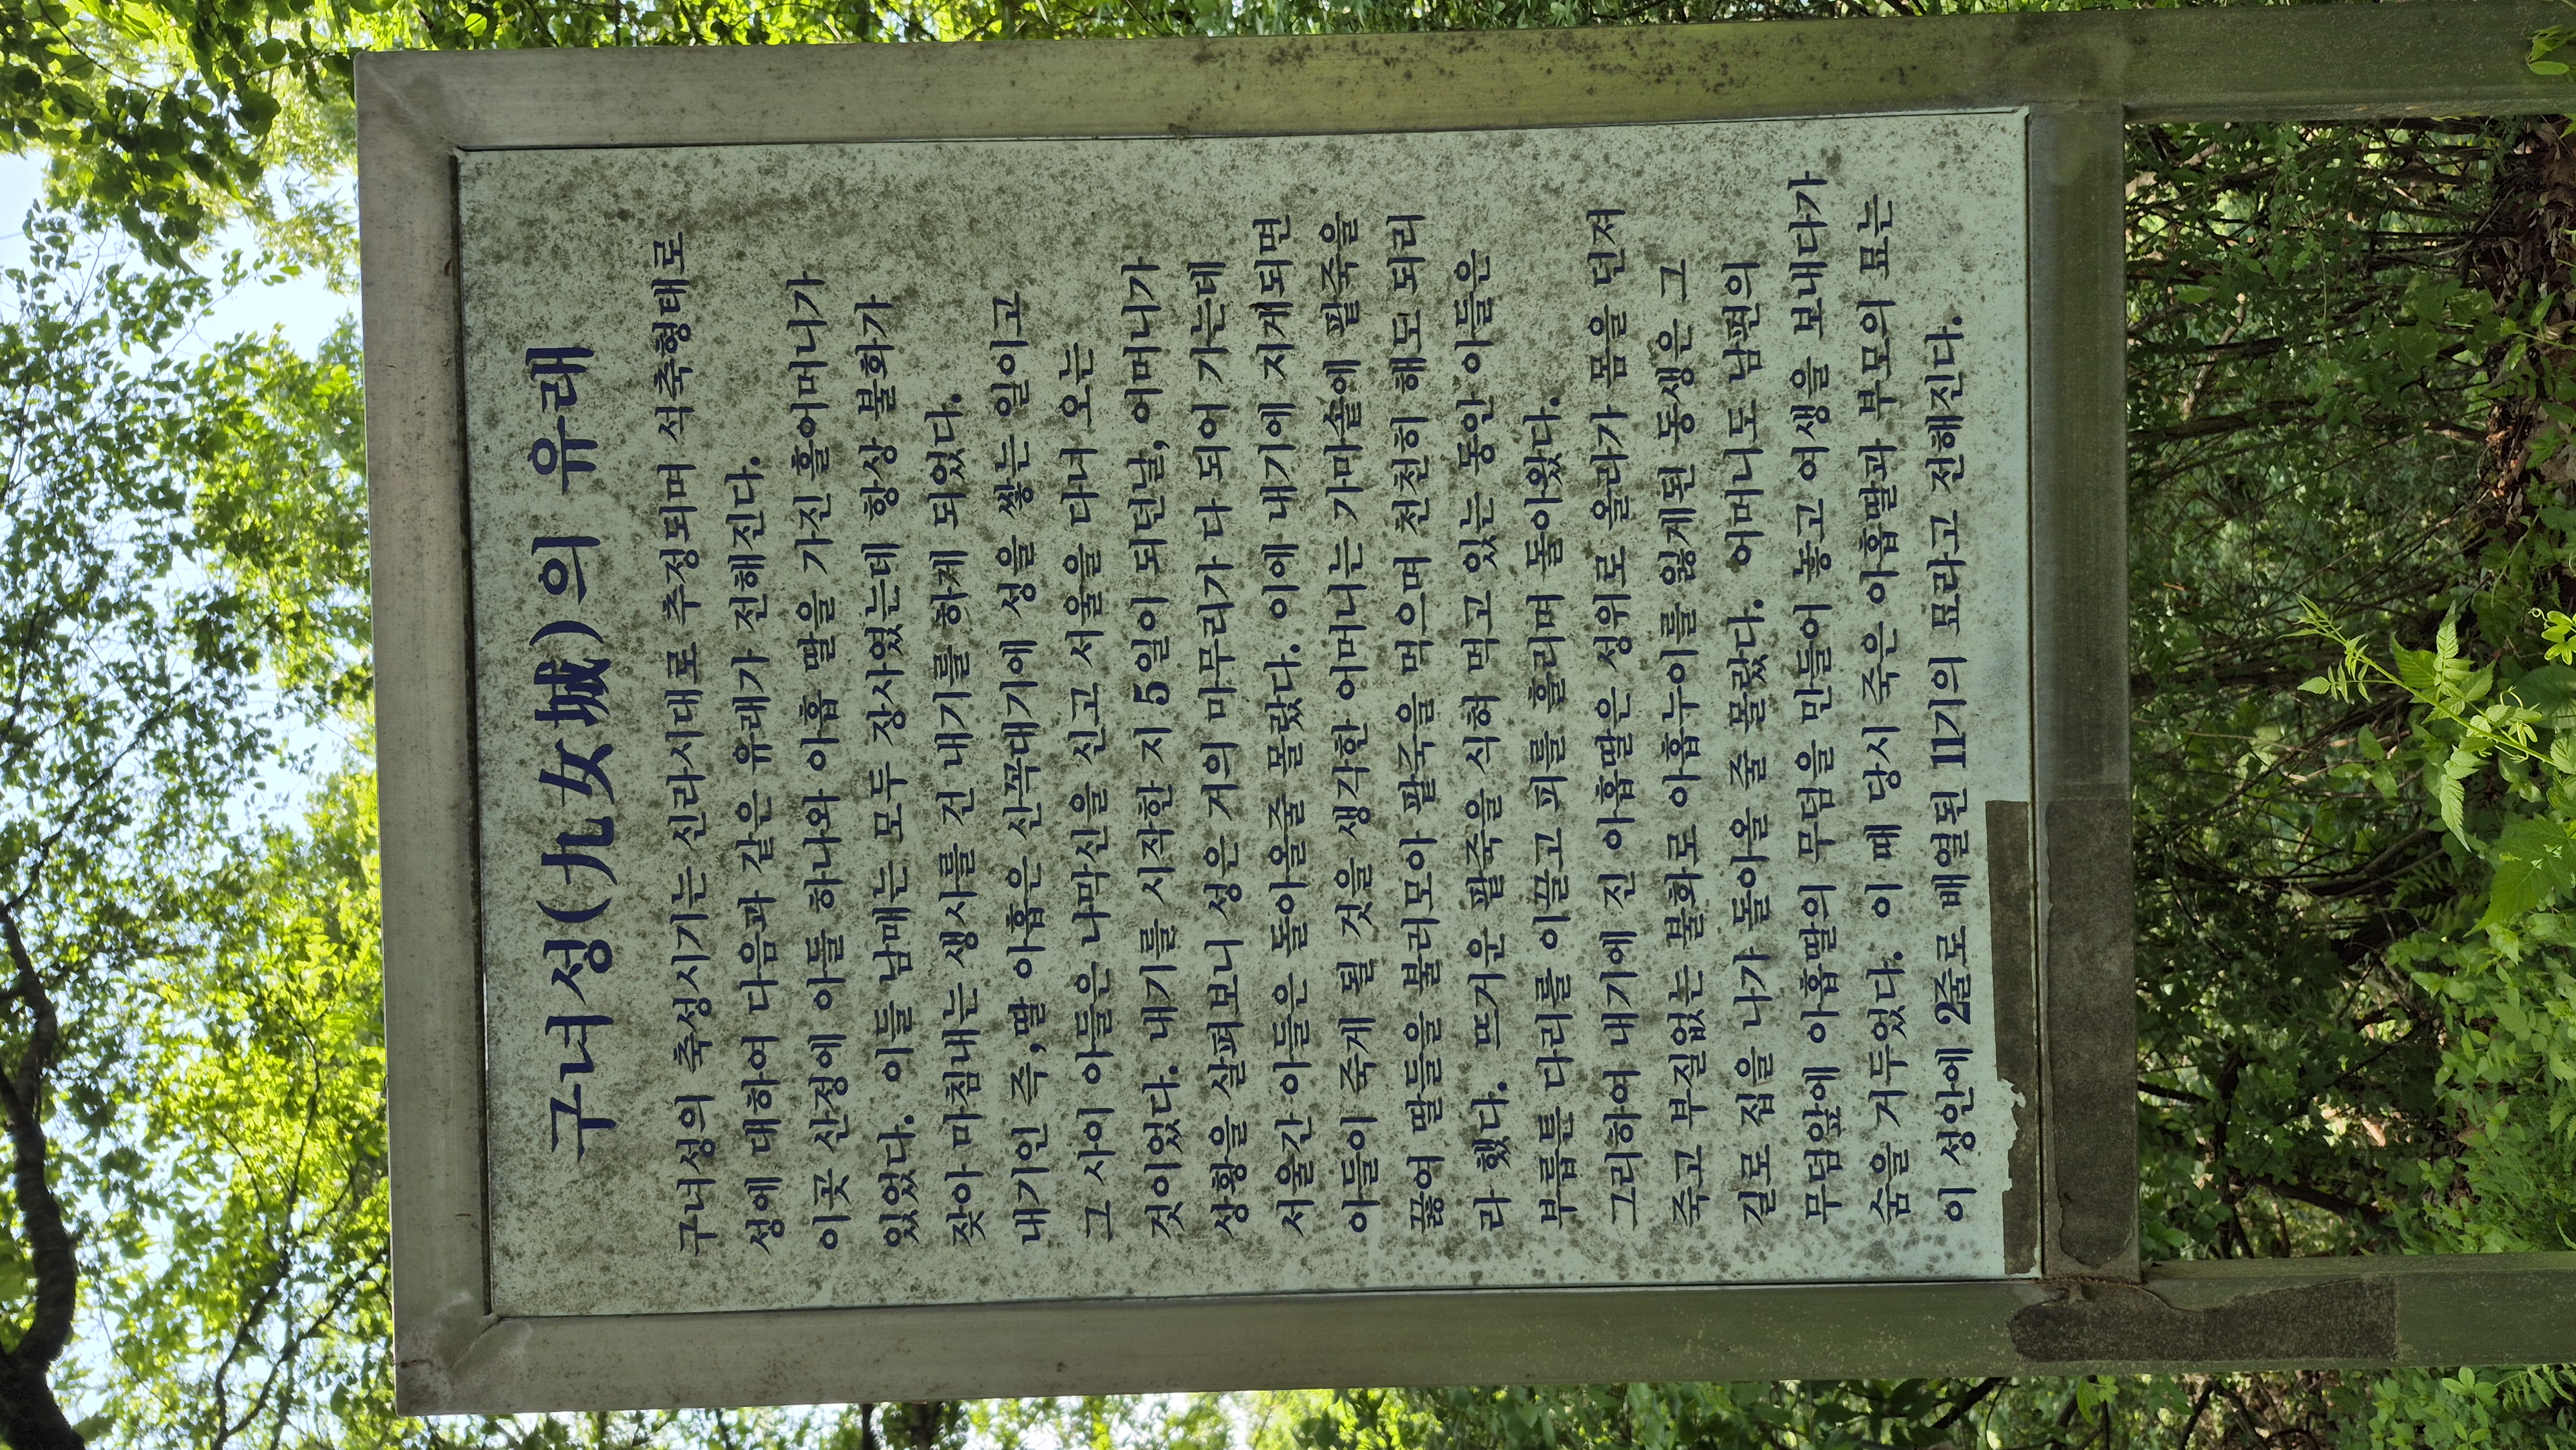 구녀성(九女城)의 유래
구녀성의 축성시기는 신라시대로 추정되며 석축형태로
성에 대하여 다음과 같은 유래가 전해진다.
이곳 산정에 아들 하나와 아홉 딸을 가진 홀어머니가
있었다. 이들 남매는 모두 장사였는데 항상 불화가
잦아 마침내는 생사를 건 내기를 하게 되었다.
내기인 즉,딸 아홉은 산꼭대기에 성을 쌓는 일이고
그 사이 아들은 나막신을 신고 서울을 다녀 오는
것이었다. 내기를 시작한 지 5일이 되던날, 어머니가
상황을 살펴보니 성은 거의 마무리가 다 되어 가는데
서울간 아들은 돌아올줄 몰랐다. 이에 내기에 지게되면
아들이 죽게 될 것을 생각한 어머니는 가마솥에 팥죽을
끓여 딸들을 불러모아 팥죽을 먹으며 천천히 해도 되리
라 했다. 뜨거운 팥죽을 식혀 먹고 있는 동안 아들은
부릅튼 다리를 이끌고 피를 흘리며 돌아왔다.
그리하여 내기에 진 아홉딸은 성위로 올라가 몸을 던져
죽고 부질없는 불화로 아홉누이를 잃게된 동생은 그
길로 집을 나가 돌아올 줄 몰랐다. 어머니도 남편의
무덤앞에 아홉딸의 무덤을 만들어 놓고 여생을 보내다가
숨을 거두었다. 이 때 당시 죽은 아홉딸과 부모의 묘는
이 성안에 2줄로 배열된 11기의 묘라고 전해진다.